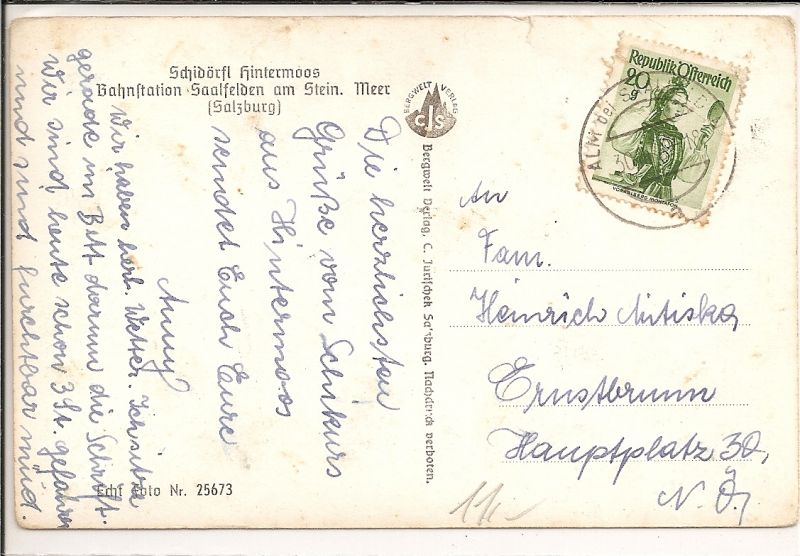 Schidörfl Hintermoos
Bahnstation Saalfelden am Stein. Meer
(Salzburg)
BERGWELT VERLAG
CJS
Republik Österreich
20
g
ALM bei
Die herzlichsten
Grüße vom Schikurs
aus Hintermoos
sendet Euch Eure
Anny
Wir haben herl. Wetter. Ich sitze
gerade im Bett darum die Schrift.
Wir sind heute schon 3 St. gefahren
und sind furchtbar müd.
Bergwelt Verlag, C. Jurischek Salzburg. Nachdruck verboten.
An
Fam.
Heinrich Mitiska
Ernstbrunn
Hauptplatz 30,
N. Ö.
Echt Foto Nr. 25673
11,-